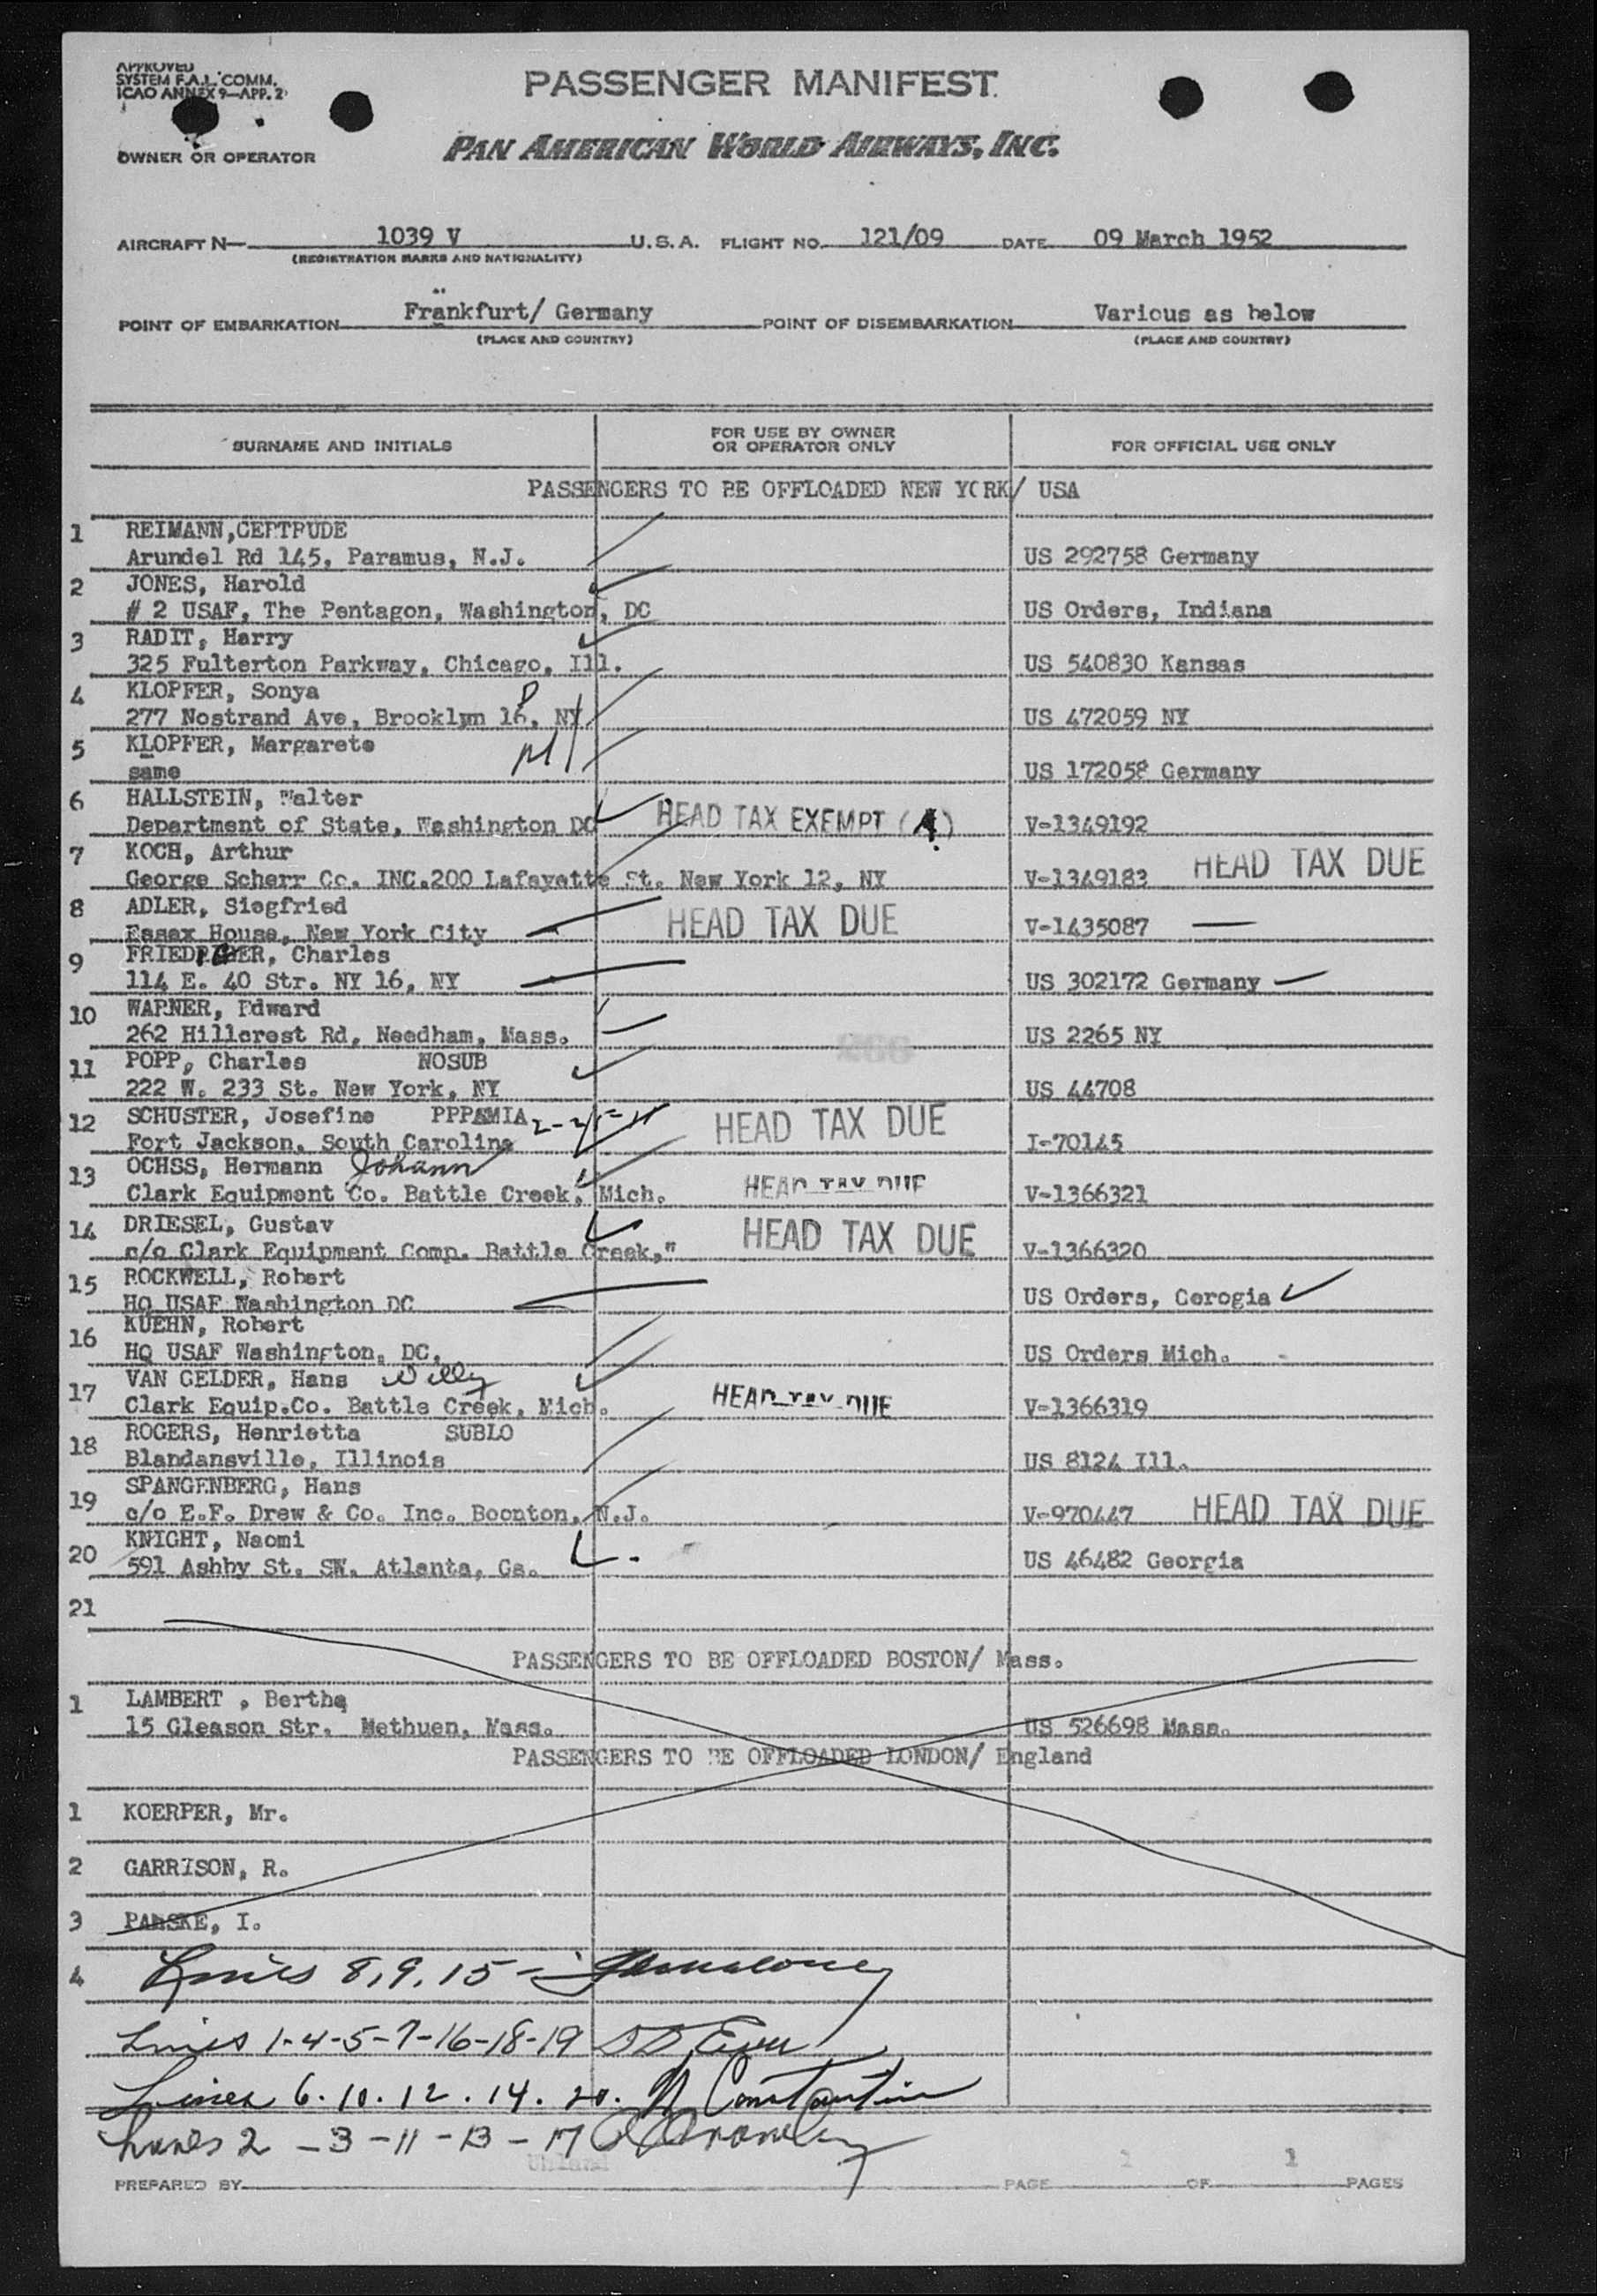 APPROVED
SYSTEM F.A.L. COMM.
ICAO ANNEX 9—APP. 2
PASSENGER MANIFEST
OWNER OR OPERATOR PAN AMERICAN WORLD AIRWAYS, INC.
AIRCRAFT N— 1039 V U.S.A. FLIGHT NO. 121/09 DATE 09 March 1952
(REGISTRATION MARKS AND NATIONALITY)
POINT OF EMBARKATION Fränkfurt/ Germany POINT OF DISEMBARKATION Various as below
(PLACE AND COUNTRY) (PLACE AND COUNTRY)
SURNAME AND INITIALS FOR USE BY OWNER OR OPERATOR ONLY FOR OFFICIAL USE ONLY
PASSENGERS TO BE OFFLOADED NEW YORK/ USA
1 REIMANN, GERTRUDE
Arundel Rd 145, Paramus, N.J. US 292758 Germany
2 JONES, Harold
# 2 USAF, The Pentagon, Washington, DC US Orders, Indiana
3 RADIT, Harry
325 Fulterton Parkway, Chicago, Ill. US 540830 Kansas
4 KLOPFER, Sonya
277 Nostrand Ave, Brooklyn 16, NY US 472059 NY
5 KLOPFER, Margarete
same US 172058 Germany
6 HALLSTEIN, Walter
Department of State, Washington DC HEAD TAX EXEMPT (A) V-1349192
7 KOCH, Arthur
George Scherr Co. INC.200 Lafayette St. New York 12, NY V-1349183 HEAD TAX DUE
8 ADLER, Siegfried
Essex House, New York City HEAD TAX DUE V-1435087
9 FRIEDRGER, Charles
114 E. 40 Str. NY 16, NY US 302172 Germany
10 WARNER, Edward
262 Hillcrest Rd, Needham, Mass. US 2265 NY
11 POPP, Charles NOSUB
222 W. 233 St. New York, NY US 44708
12 SCHUSTER, Josefine PPPAMIA
Fort Jackson, South Carolina HEAD TAX DUE I-70145
13 OCHSS, Hermann Johann
Clark Equipment Co. Battle Creek, Mich. HEAD TAX DUE V-1366321
14 DRIESEL, Gustav
c/o Clark Equipment Comp. Battle Creek," HEAD TAX DUE V-1366320
15 ROCKWELL, Robert
HQ USAF Washington DC US Orders, Gerogia
16 KUEHN, Robert
HQ USAF Washington, DC. US Orders Mich.
17 VAN GELDER, Hans Willy
Clark Equip.Co. Battle Creek, Mich. HEAD TAX DUE V-1366319
18 ROGERS, Henrietta SUBLO
Blandansville, Illinois US 8124 Ill.
19 SPANGENBERG, Hans
c/o E.F. Drew & Co. Inc. Boonton, N.J. V-970447 HEAD TAX DUE
20 KNIGHT, Naomi
591 Ashby St. SW. Atlanta, Ga. US 46482 Georgia
21
PASSENGERS TO BE OFFLOADED BOSTON/ Mass.
1 LAMBERT , Bertha
15 Gleason Str. Methuen, Mass. US 526698 Mass.
PASSENGERS TO BE OFFLOADED LONDON/ England
1 KOERPER, Mr.
2 GARRISON, R.
3 PANSKE, I.
4 Lines 8, 9, 15 -
Lines 1-4-5-7-16-18-19
Lines 6. 10. 12. 14. 20. Constantin
Lines 2 - 3 - 11 - 13 - 17
PREPARED BY PAGE 1 OF 1 PAGES